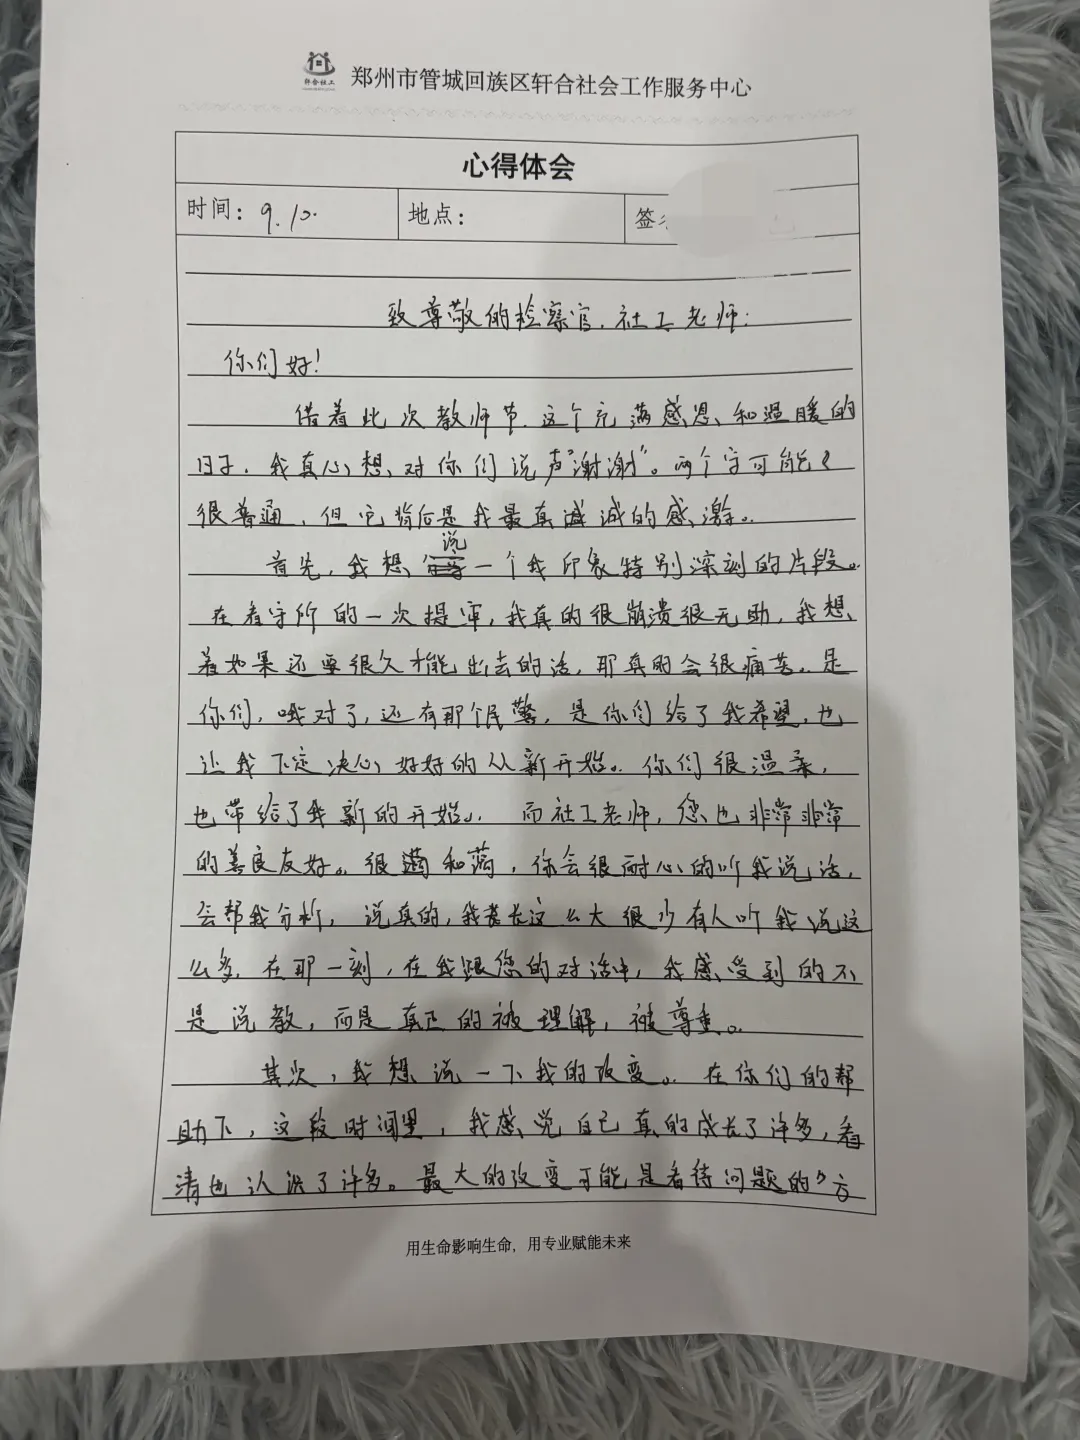 轩合社工
郑州市管城回族区轩合社会工作服务中心
心得体会
时间：9.10. 地点： 签
致尊敬的检察官、社工老师：
你们好！
借着此次教师节，这个充满感恩、和温暖的
日子，我真心想对你们说声“谢谢”。两个字可能
很普通，但它背后是我最真诚的感激。
首先，我想说一个我印象特别深刻的片段。
在看守所的一次提审，我真的很崩溃很无助，我想
着如果还要很久才能出去的话，那真的会很痛苦。是
你们，哦对了，还有那个民警，是你们给了我希望，也
让我下定决心好好的从新开始。你们很温柔，
也带给了我新的开始。而社工老师，您也非常非常
的善良友好。很和蔼，你会很耐心的听我说话，
会帮我分析，说真的，我长这么大很少有人听我说这
么多，在那一刻，在我跟您的对话中，我感受到的不
是说教，而是真正的被理解，被尊重。
其次，我想说一下我的改变。在你们的帮
助下，这段时间里，我感觉自己真的成长了许多，看
清也认识了许多。最大的改变可能是看待问题的“方
用生命影响生命，用专业赋能未来